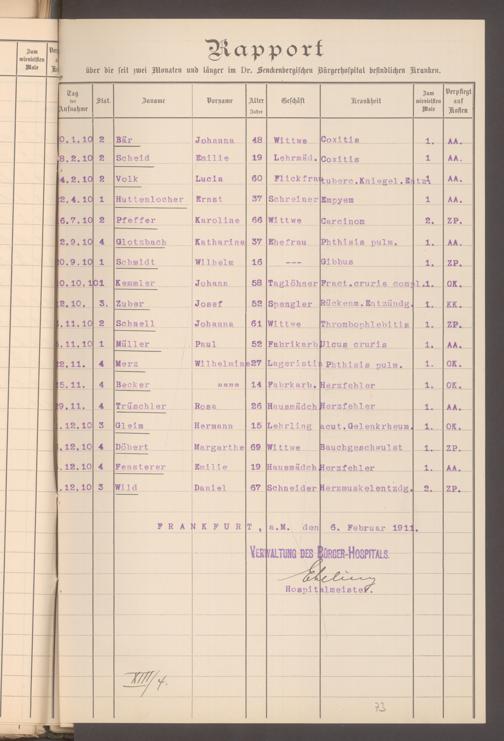 Zum
wievielten
Male
Rapport
über die seit zwei Monaten und länger im Dr. Senckenbergischen Bürgerhospital befindlichen Kranken.
Tag der Aufnahme Stat. Zuname Vorname Alter Jahre Geschäft Krankheit Zum wievielten Male Verpflegt auf Kosten
0.1.10 2 Bär Johanna 48 Wittwe Coxitis 1. AA.
8.2.10 2 Scheid Emilie 19 Lehrmäd. Coxitis 1 AA.
4.2.10 2 Volk Lucia 60 Flickfrau tuberc.Kniegel.Entz. 1 AA.
2.4.10 1 Huttenlocher Ernst 37 Schreiner Empyem 1 AA.
6.7.10 2 Pfeffer Karoline 66 Wittwe Carcinom 2. ZP.
2.9.10 4 Glotzbach Katharine 37 Ehefrau Phthisis pulm. 1. AA.
0.9.10 1 Schmidt Wilhelm 16 --- Gibbus 1. ZP.
0.10.10 1 Kemmler Johann 58 Taglöhner Fract.cruris compl. 1. OK.
2.10. 3. Zuber Josef 52 Spengler Rückenm.Entzündg. 1. KK.
.11.10 2 Schnell Johanna 61 Wittwe Thrombophlebitis 1. ZP.
.11.10 1 Müller Paul 52 Fabrikarb. Ulcus cruris 1. AA.
22.11. 4 Merz Wilhelmine 27 Lageristin Phthisis pulm. 1. OK.
25.11. 4 Becker "" "" 14 Fabrkarb. Herzfehler 1. OK.
29.11. 4 Trüschler Rosa 26 Hausmädch. Herzfehler 1. AA.
.12.10 3 Gleim Hermann 15 Lehrling acut.Gelenkrheum. 1. OK.
.12.10 4 Döbert Margarthe 69 Wittwe Bauchgeschwulst 1. ZP.
.12.10 4 Fensterer Emilie 19 Hausmädch. Herzfehler 1. AA.
.12.10 3 Wild Daniel 67 Schneider Herzmuskelentzdg. 2. ZP.
FRANKFURT, a.M. den 6. Februar 1911.
VERWALTUNG DES BÜRGER-HOSPITALS.
Ebeling
Hospitalmeister.
XIII/4.
73